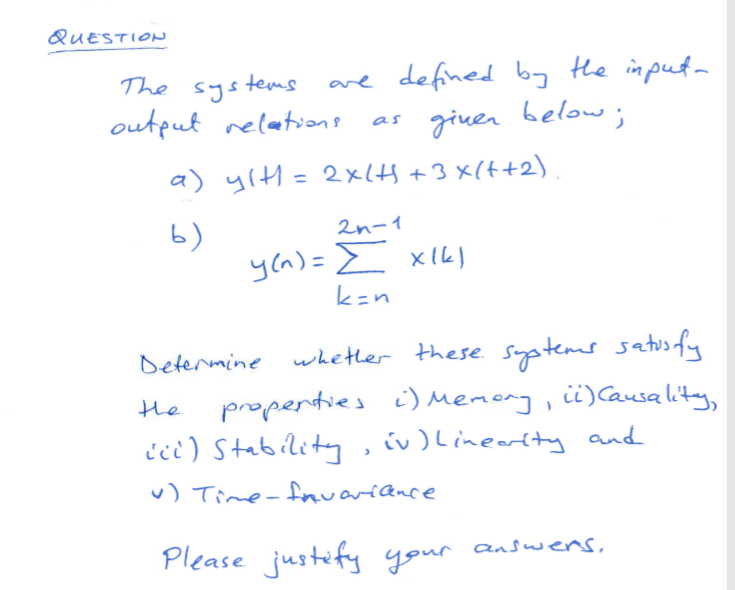 QUESTION
The systems are defined by the input-
output relations as given below;
a) y(t) = 2x(t) + 3x(t+2).
b)
2n-1
y(n) = Σ x(k)
k=n
Determine whether these systems satisfy
the properties i) Memory, ii) Causality,
iii) Stability, iv) Linearity and
v) Time-Invariance
Please justify your answers.